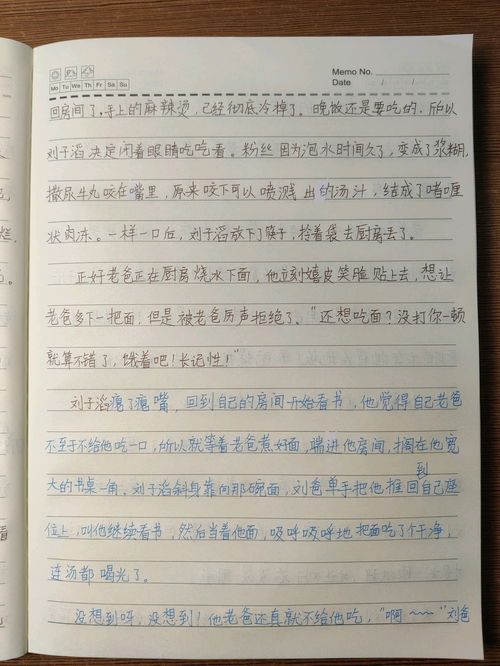 Memo No.
Mo Tu We Th Fr Sa Su
Date / /
回房间了,手上的麻辣烫,已经彻底冷掉了。晚饭还是要吃的.所以
刘子滔决定闭着眼睛吃吃看。粉丝因为泡水时间久了,变成了浆糊,
撒尿牛丸咬在嘴里,原来咬下可以喷溅出的汤汁,结成了啫喱
状肉冻。一样一口后,刘子滔放下了筷子,拎着袋去厨房丢了。
正好老爸正在厨房烧水下面,他立刻嬉皮笑脸贴上去,想让
老爸多下一把面,但是被老爸厉声拒绝了。“还想吃面?没打你一顿
就算不错了,饿着吧!长记性!”
刘子滔瘪了瘪嘴,回到自己的房间开始看书,他觉得自己老爸
不至于不给他吃一口,所以就等着老爸煮好面,端进他房间,搁在他宽
大的书桌一角.刘子滔斜身靠向那碗面,刘爸单手把他推回到自己座
位上,叫他继续看书,然后当着他面,吸呼吸呼地把面吃了个干净,
连汤都喝光了。
没想到呀,没想到!他老爸还真就不给他吃,“啊~~~”刘爸